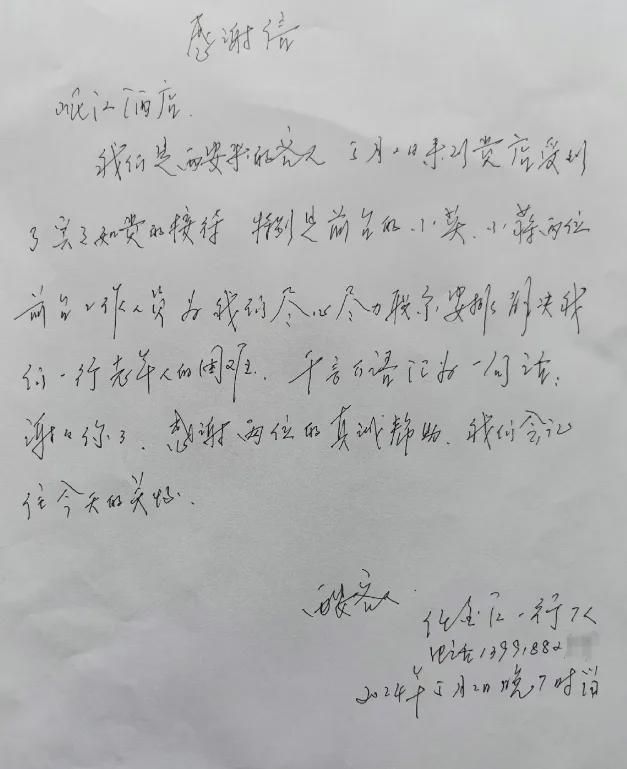 感谢信
岷江酒店.
我们是西安来的客人 5月2日来到贵店受到
了宾至如贵的接待 特别是前台的小英、小蒋两位
前台工作人员为我们尽心尽力联系安排解决我
们一行老年人的困难. 千言万语汇为一句话:
谢谢你了. 感谢两位的真诚帮助. 我们会记
住今天的美好.
西安客人
一行7人
电话1399,882
2024年5月2日晚7时